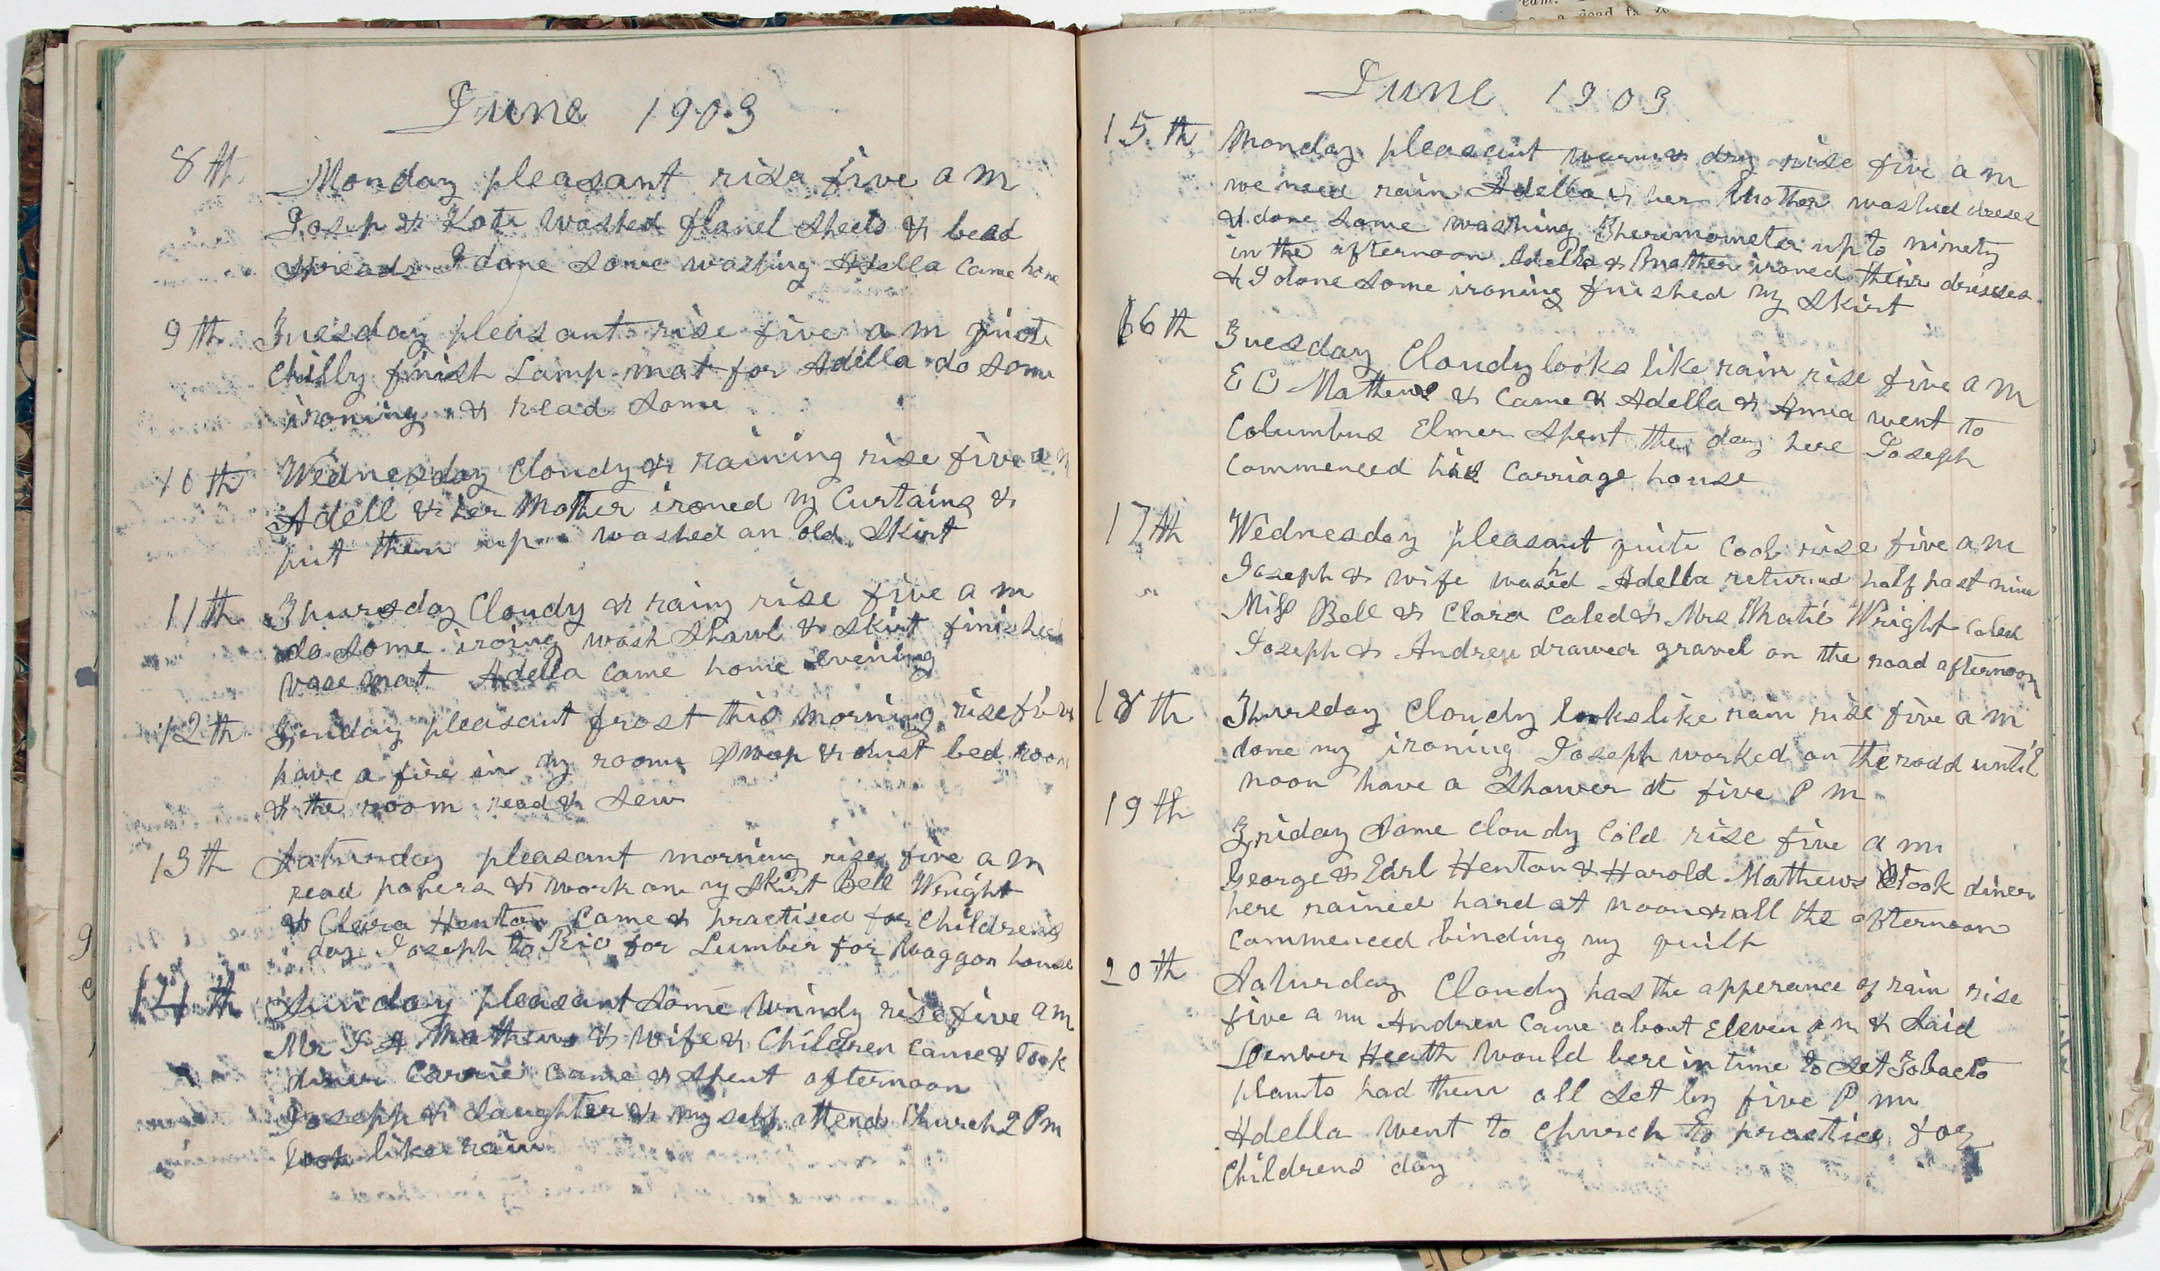 June 1903
8th Monday pleasant rise five a m
Josep & Kate washed flanel sheets & bead
spreads I done some washing Adella came home
9th Tuesday pleasant rise five a m quite
chilly finish Lamp mat for Adella do some
ironing & read some
10th Wednesday Cloudy & raining rise five a m
Adell & her Mother ironed my Curtains &
put them up washed an old skirt
11th Thursday Cloudy & rainy rise five a m
do some iroing wash Shawl & skirt finished
vase mat Adella came home evening
12th Friday pleasant frost this morning rise five
have a fire in my room swep & dust bed room
& the room read & sew
13th Saturday pleasant morning rise five a m
read papers & work on my skirt Bell Wright
& Clara Henton came & practised for Childrens
day Joseph to Rio for Lumber for Waggon house
14th Sunday pleasant some windy rise five a m
Mr J A Mathews & wife & Children came & took
diner Carrie came & spent afternoon
Joseph & daughter & my self attend Church 2 Pm
look like rain
June 1903
15th Monday pleasant warm & dry rise five a m
we need rain Adella & her Mother washed dreses
& done some washing Thermometer up to ninety
in the afternoon Adella & Mother ironed their dresses
& I done some ironing finished my skirt
16th Tuesday Cloudy looks like rain rise five a m
E C Mathews & Came & Adella & Anna went to
Columbus Elmer spent the day here Joseph
commenced his carriage house
17th Wednesday pleasant quite cool rise five a m
Joseph & wife washed Adella returned half past nine
Miss Bell & Clara caled & Mrs Matie Wright caled
Joseph & Andrew drawed gravel on the road afternoon
18th Thursday Cloudy looks like rain rise five a m
done my ironing Joseph worked on the road until
noon have a Shower at five P m
19th Friday some cloudy cold rise five a m
George & Earl Henton & Harold Mathews took diner
here rained hard at noon & all the afternoon
commenced binding my quilt
20th Saturday Cloudy has the apperance of rain rise
five a m Andrew came about Eleven a m & said
Denver Heath would bere in time to set Tobacto
plants had them all set by five P m
Adella went to church to practice for
Childrens day